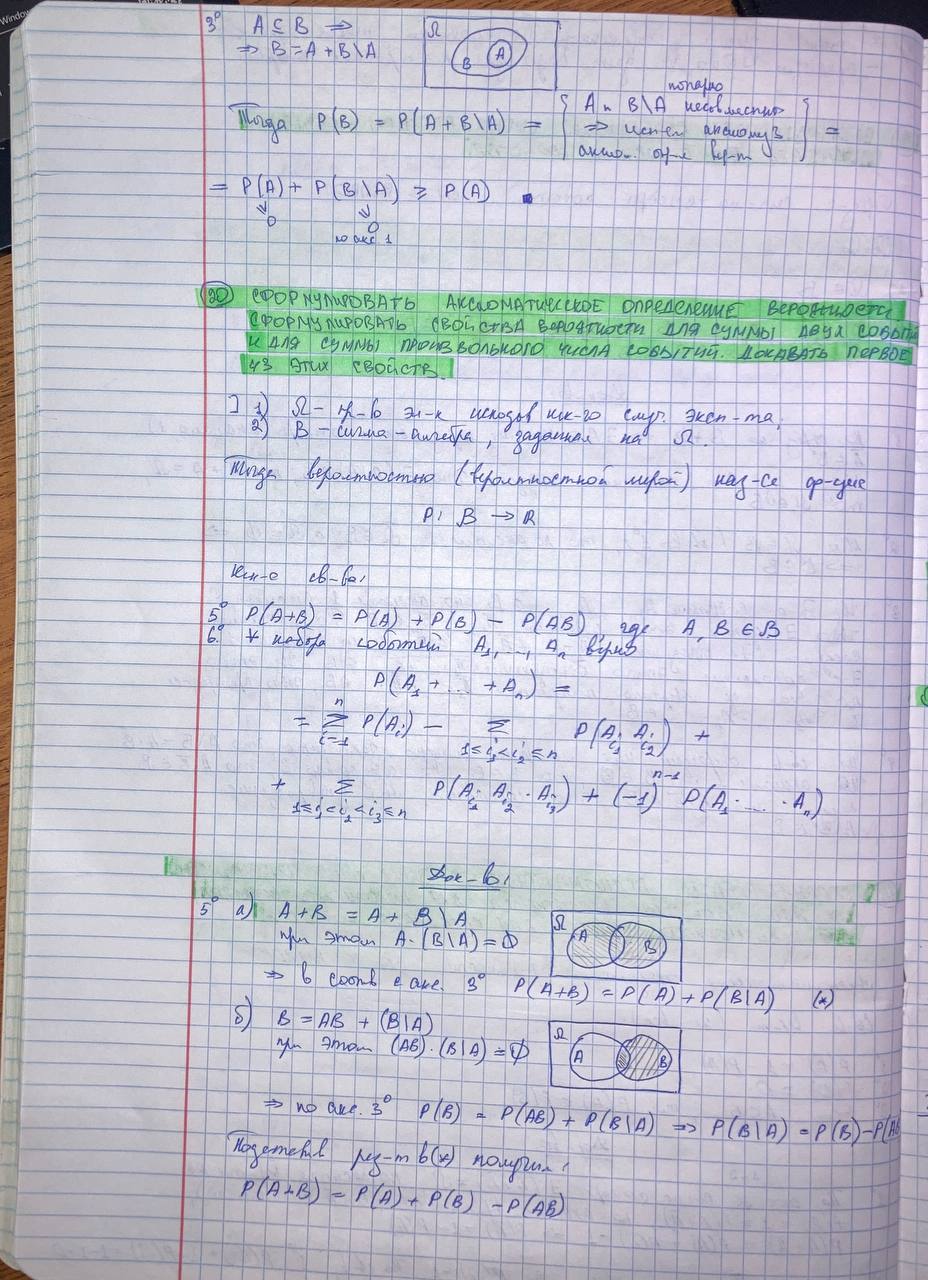 Window
3° A ⊆ B ⇒
⇒ B = A + B\A
Ω
B A
Тогда P(B) = P(A + B\A) = { A и B\A попарно несовместны ⇒ исп-ем аксиому 3 аксио. опр-я вер-ти } =
= P(A) + P(B\A) ≥ P(A) ■
0 0
по акс 1
20 СФОРМУЛИРОВАТЬ АКСИОМАТИЧЕСКОЕ ОПРЕДЕЛЕНИЕ ВЕРОЯТНОСТИ
СФОРМУЛИРОВАТЬ СВОЙСТВА ВЕРОЯТНОСТИ ДЛЯ СУММЫ ДВУХ СОБЫТИ
И ДЛЯ СУММЫ ПРОИЗВОЛЬНОГО ЧИСЛА СОБЫТИЙ. ДОКАЗАТЬ ПЕРВОЕ
ИЗ ЭТИХ СВОЙСТВ.
] 1) Ω – пр-во эл-х исходов нек-го случ. эксп-та,
2) B – сигма-алгебра, заданная на Ω.
Тогда вероятностью (вероятностной мерой) наз-ся ф-ция
P: B → R
св-ва:
5° P(A+B) = P(A) + P(B) − P(AB), где A, B ∈ B
6° ∀ набора событий A₁, ..., Aₙ верно
P(A₁ + ... + Aₙ) =
= Σ_{i=1}^{n} P(Aᵢ) − Σ_{1≤i₁<i₂≤n} P(A_{i₁} A_{i₂}) +
+ Σ_{1≤i<i₂<i₃≤n} P(A_{i₁} A_{i₂} · A_{i₃}) + (−1)^{n−1} P(A₁ · ... · Aₙ)
Док-во:
5° а) A+B = A + B\A
при этом A·(B\A) = ∅
Ω A B
⇒ в соотв с акс. 3° P(A+B) = P(A) + P(B\A) (*)
б) B = AB + (B\A)
при этом (AB)·(B\A) = ∅
Ω A B
⇒ по акс. 3° P(B) = P(AB) + P(B\A) ⇒ P(B\A) = P(B) − P(AB
Подставив рез-т в (*) получим:
P(A+B) = P(A) + P(B) − P(AB)